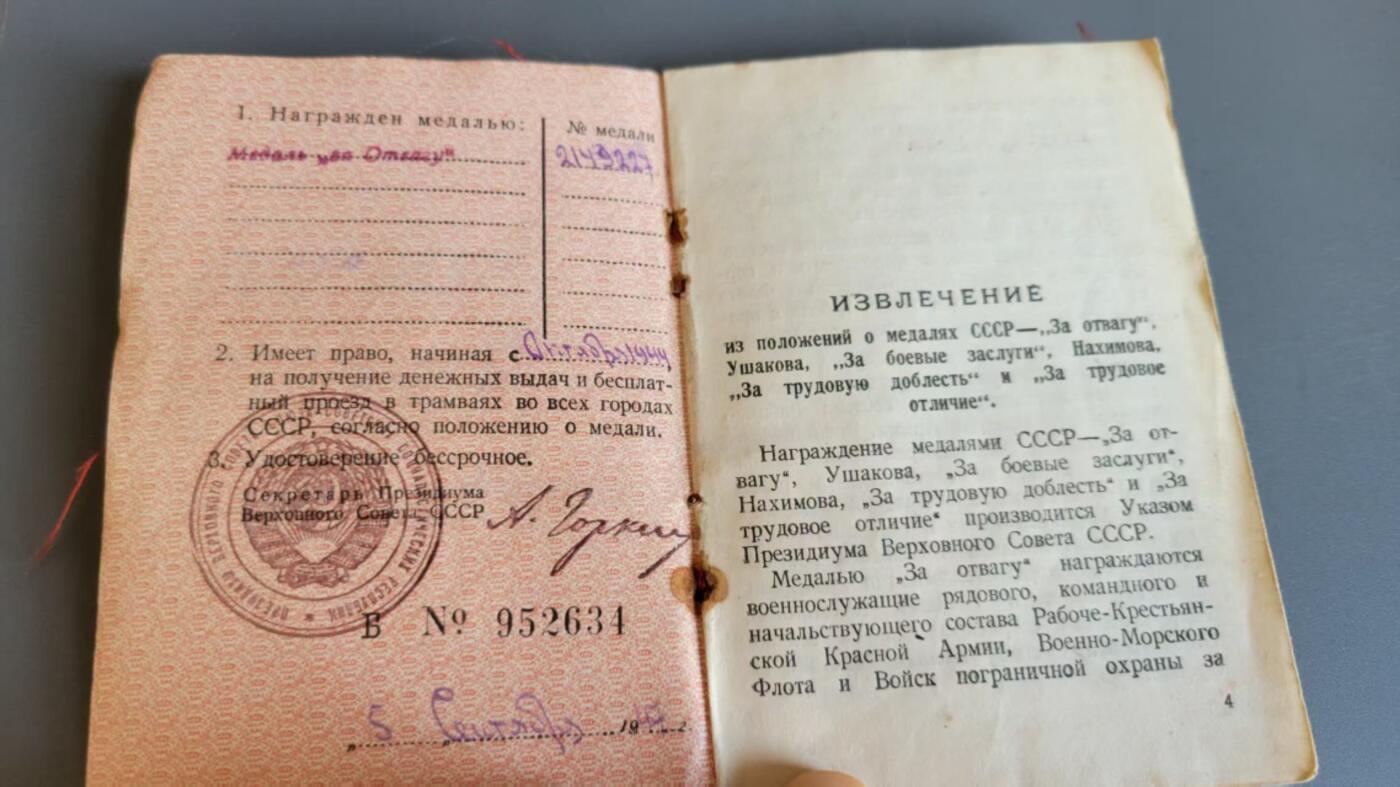 1. Награжден медалью:
№ медали
Медаль „за Отвагу“
2149227
2. Имеет право, начиная с Октября 1944
на получение денежных выдач и бесплат-
ный проезд в трамваях во всех городах
СССР, согласно положению о медали.
3. Удостоверение бессрочное.
Секретарь Президиума
Верховного Совета СССР
А. Горкин
В № 952634
„ 5 „ Сентября 19 г.
ИЗВЛЕЧЕНИЕ
из положений о медалях СССР—„За отвагу“,
Ушакова, „За боевые заслуги“, Нахимова,
„За трудовую доблесть“ и „За трудовое
отличие“.
Награждение медалями СССР—„За от-
вагу“, Ушакова, „За боевые заслуги“,
Нахимова, „За трудовую доблесть“ и „За
трудовое отличие“ производится Указом
Президиума Верховного Совета СССР.
Медалью „За отвагу“ награждаются
военнослужащие рядового, командного и
начальствующего состава Рабоче-Крестьян-
ской Красной Армии, Военно-Морского
Флота и Войск пограничной охраны за
4